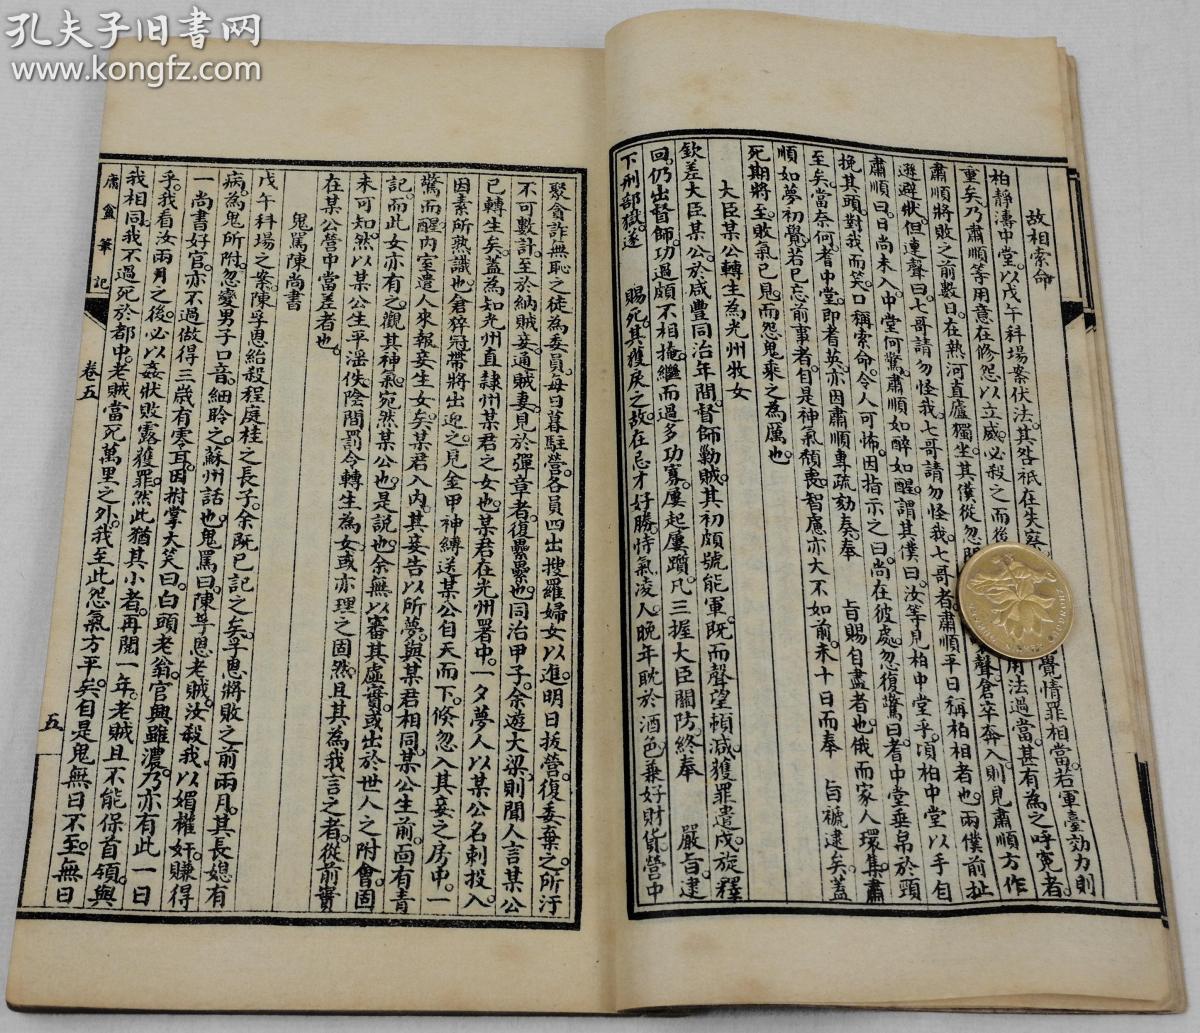 孔夫子旧书网
www.kongfz.com
故相索命
柏靜濤中堂以戊午科場案伏法其咎祇在失察
覺情罪相當若軍臺効力則
重矣乃肅順等用意在修怨以立威必殺之而後
用法過當甚有為之呼冤者
肅順將敗之前數日在熱河直廬獨坐其僕從忽聞
聲倉卒奔入則見肅順方作
遜避狀但連聲曰七哥請勿怪我七哥請勿怪我七哥者肅順平日稱柏相者也兩僕前扯
肅順曰日尚未入中堂何驚肅順如醉如醒謂其僕曰汝等見柏中堂乎頃柏中堂以手自
挽其頭對我而笑口稱索命令人可怖因指示之曰尚在彼處忽復驚曰耆中堂垂帛於頸
至矣當奈何耆中堂即者英亦因肅順專疏劾奏奉　旨賜自盡者也俄而家人環集肅
順如夢初覺若已忘前事者自是神氣頹喪智慮亦大不如前未十日而奉　旨褫逮矣蓋
死期將至敗氣已見而怨鬼乘之為厲也
大臣某公轉生為光州牧女
欽差大臣某公於咸豐同治年間督師勦賊其初頗號能軍既而聲望頓減獲罪遣戍旋釋
回仍出督師功過頗不相掩繼而過多功寡屢起屢躓凡三握大臣關防終奉　嚴旨逮
下刑部獄遂　賜死其獲戾之故在忌才好勝恃氣凌人晚年耽於酒色兼好財貨營中
聚貪詐無恥之徒為委員每日暮駐營各員四出搜羅婦女以進明日拔營復委棄之所汙
不可數計至於納賊妾通賊妻見於彈章者復纍纍也同治甲子余遊大梁則聞人言某公
已轉生矣蓋為知光州直隸州某君之女也某君在光州署中一夕夢人以某公名刺投入
因素所熟識也倉猝冠帶將出迎之見金甲神縛送某公自天而下倏忽入其妾之房中一
驚而醒內室遣人來報妾生女矣某君入內其妾告以所夢與某君相同某公生前面有青
記而此女亦有之觀其神氣宛然某公也是說也余無以審其虛實或出於世人之附會固
未可知然以某公生平淫佚陰間罰令轉生為女或亦理之固然且其為我言之者從前實
在某公營中當差者也
鬼罵陳尚書
戊午科場之案陳孚恩紿殺程庭桂之長子余既已記之矣孚恩將敗之前兩月其長媳有
病為鬼所附忽變男子口音細聆之蘇州話也鬼罵曰陳孚恩老賊汝殺我以媚權奸賺得
一尚書好官亦不過做得三歲有零耳因拊掌大笑曰白頭老翁官興雖濃乃亦有此一日
乎我看汝兩月之後必以姦狀敗露獲罪然此猶其小者再閱一年老賊且不能保首領與
我相同我不過死於都中老賊當死萬里之外我至此怨氣方平矣自是鬼無日不至無日
庸盦筆記
卷五
五